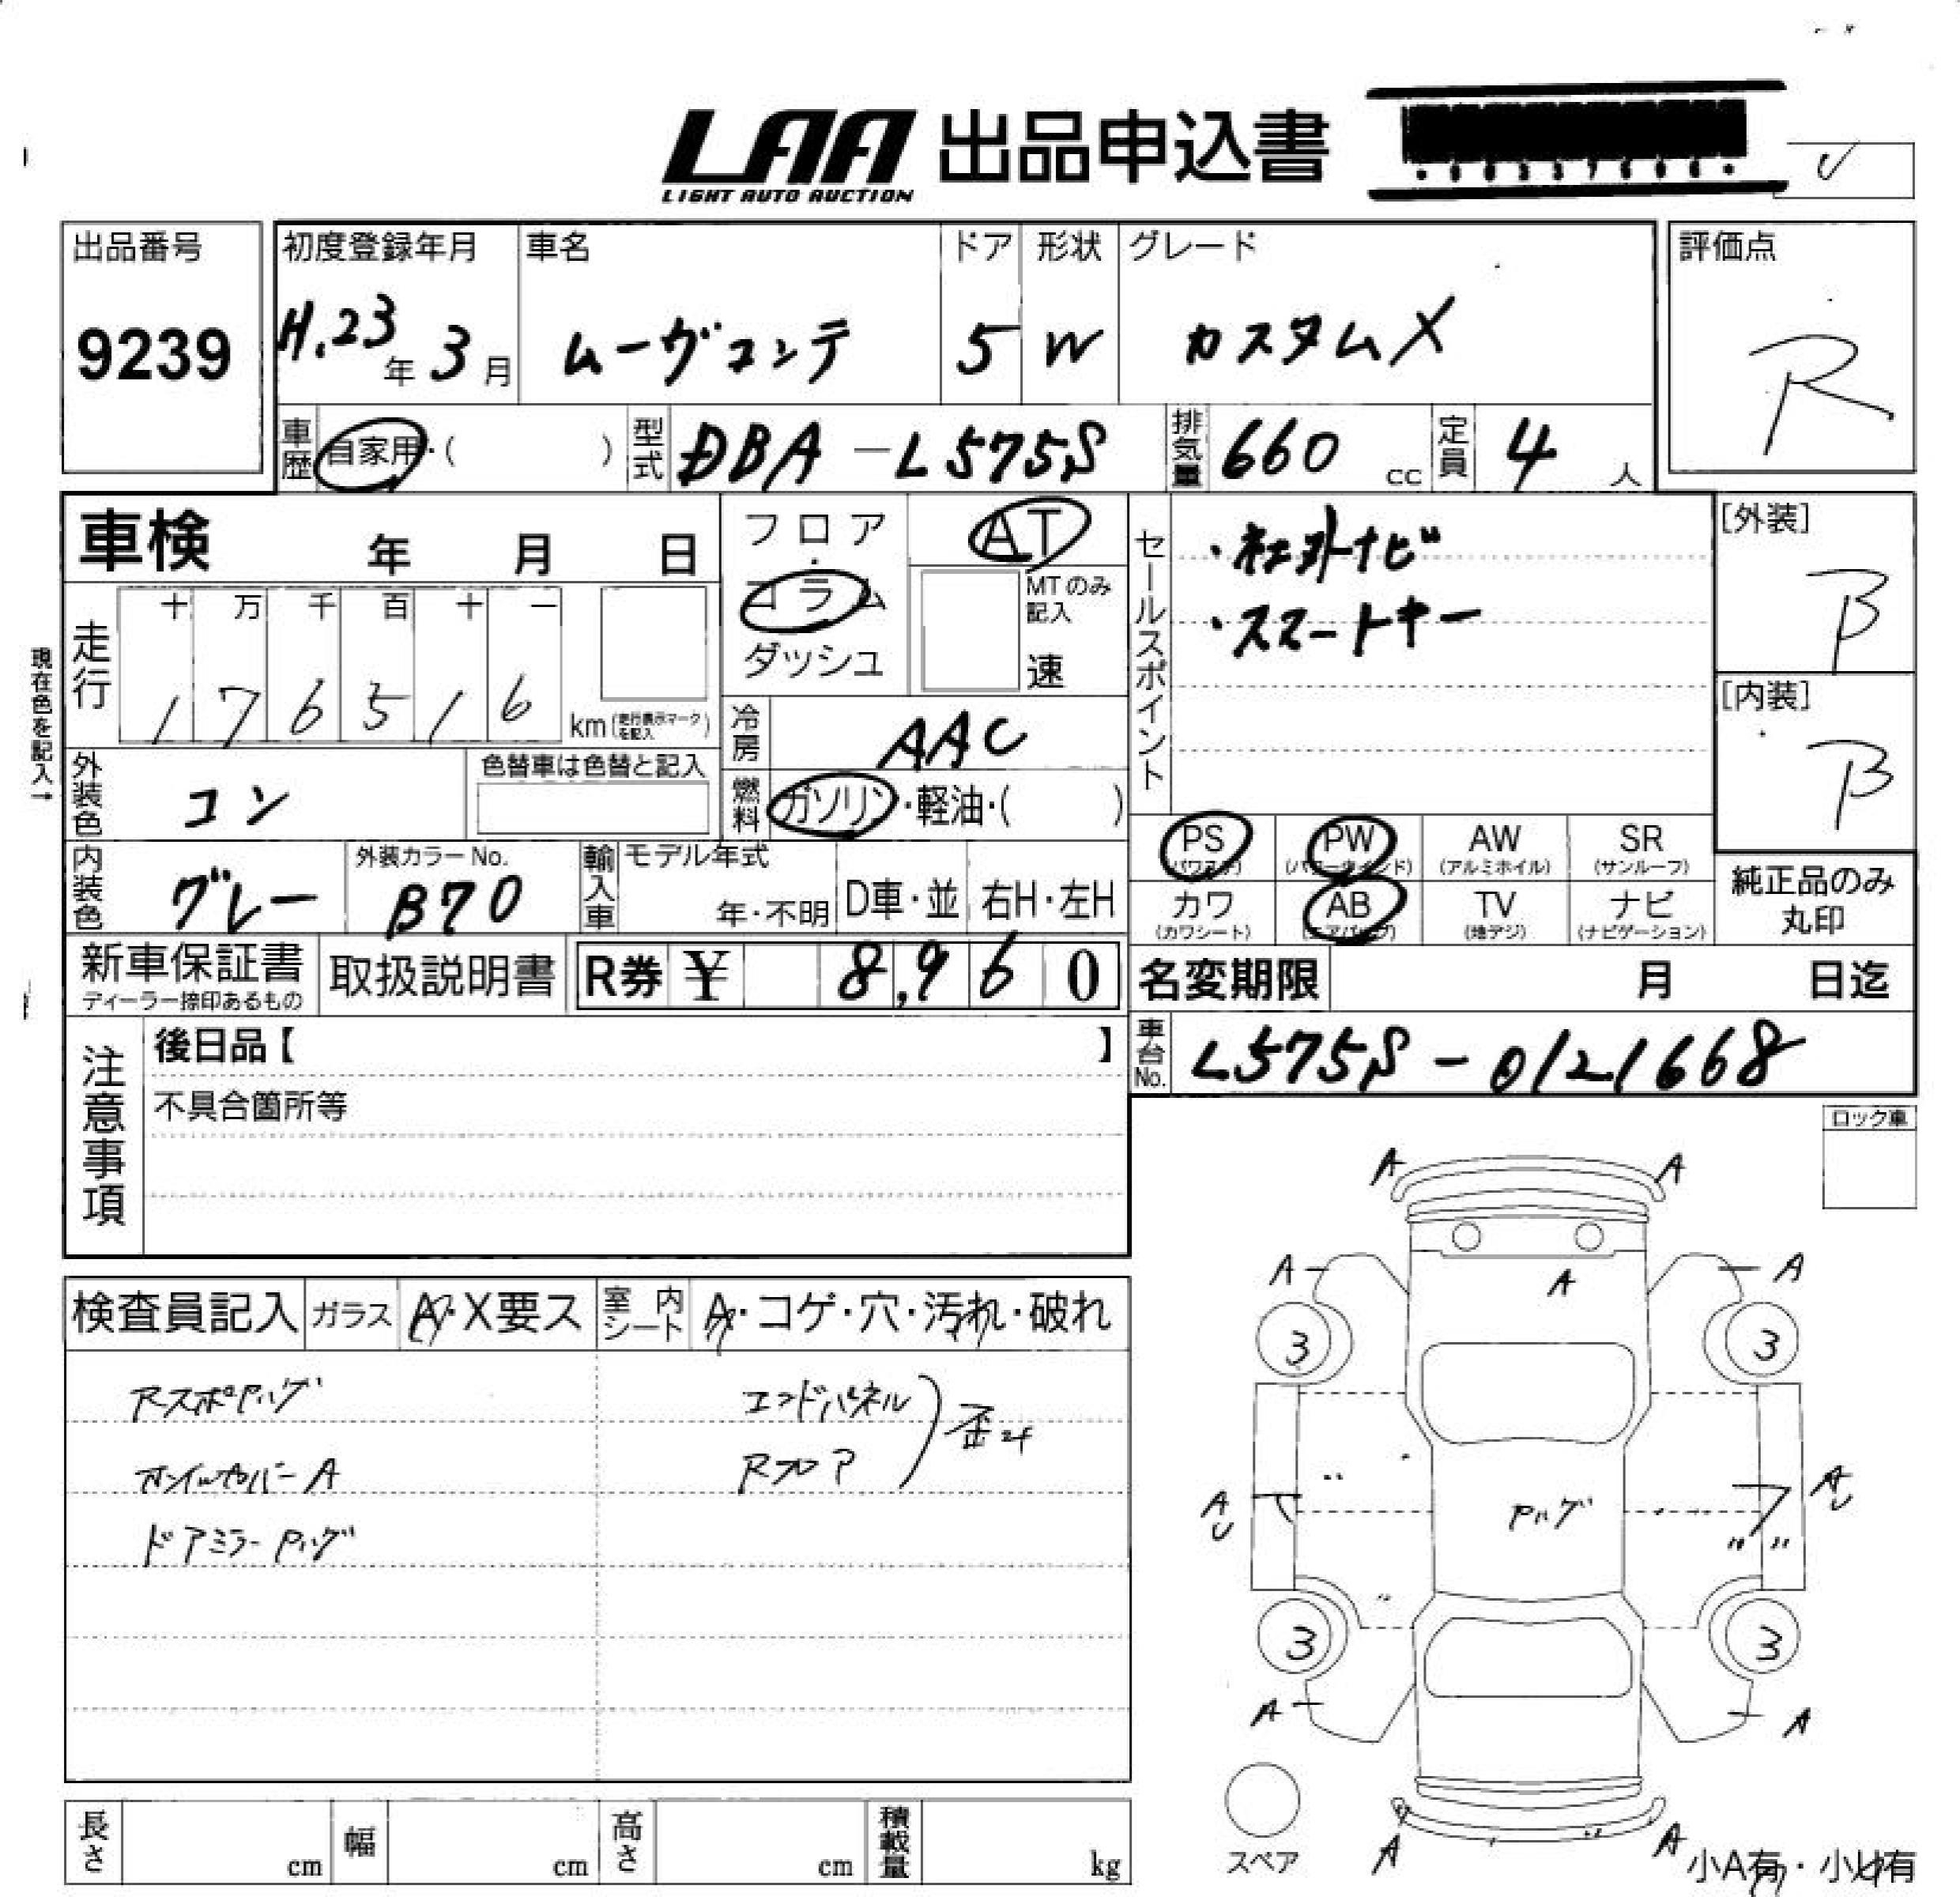 LAA 出品申込書
LIGHT AUTO AUCTION
出品番号
9239
初度登録年月
H.23年 3月
車名
ムーヴコンテ
ドア
5
形状
W
グレード
カスタムX
評価点
R
車歴 自家用・( )
型式 DBA-L575S
排気量 660 cc
定員 4 人
車検 年 月 日
走行 十 万 千 百 十 一
1 7 6 5 1 6
km (走行表示マークを記入)
現在色を記入→
フロア・コラム
ダッシュ
AT
MTのみ記入
速
冷房 AAC
燃料 ガソリン・軽油・( )
外装色 コン
色替車は色替と記入
内装色 グレー
外装カラーNo.
B70
輸入車 モデル年式
年・不明
D車・並
右H・左H
セールスポイント
・社外ナビ
・スマートキー
[外装]
B
[内装]
B
PS (パワステ)
PW (パワーウインド)
AW (アルミホイル)
SR (サンルーフ)
カワ (カワシート)
AB (エアバッグ)
TV (地デジ)
ナビ (ナビゲーション)
純正品のみ
丸印
新車保証書
ディーラー捺印あるもの
取扱説明書
R券 ¥ 8,960
名変期限 月 日迄
車台No. L575S-0121668
注意事項
後日品【 】
不具合箇所等
ロック車
検査員記入 ガラス A・X要ス 室内シート A・コゲ・穴・汚れ・破れ
RスポPハゲ
エンドパネル
Rフロア
歪み
オイルカバーA
ドアミラーPハゲ
A A
A A A
3 3
AU AU
Pハゲ
3 3
A A
A A
スペア
小A有・小U有
長さ cm 幅 cm 高さ cm 積載量 kg